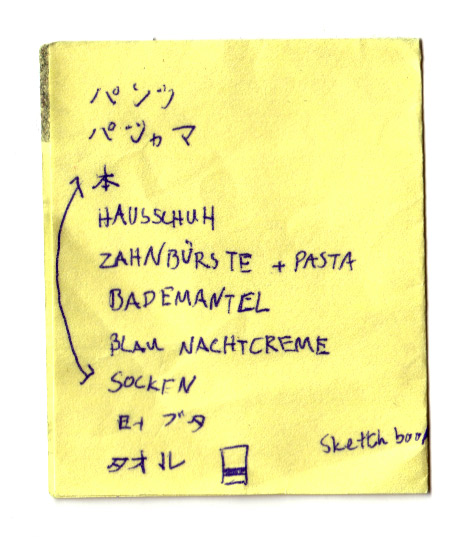 パンツ
パジャマ
本
HAUSSCHUH
ZAHNBÜRSTE + PASTA
BADEMANTEL
BLAU NACHTCREME
SOCKEN
ブタ
Sketch book
タオル